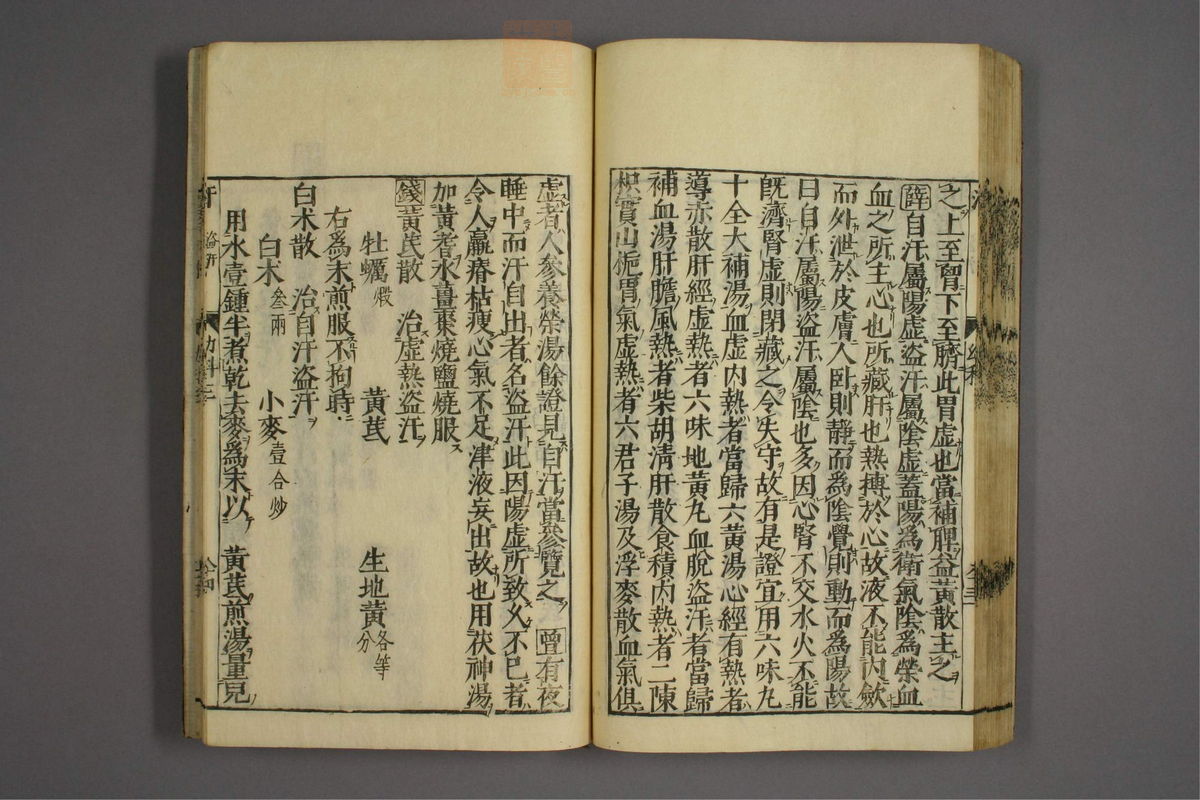 之上至胷下至臍此胃虛也當補脾益黃散主之
薛自汗屬陽虛盜汗屬陰虛蓋陽爲衛氣陰爲榮血
血之所主心也所藏肝也熱搏於心故液不能內歛
而外泄於皮膚人卧則靜而爲陰覺則動而爲陽故
曰自汗屬陽盜汗屬陰也多因心腎不交水火不能
旣濟腎虛則閉藏之令失守故有是證宜用六味丸
十全大補湯血虛內熱者當歸六黃湯心經有熱者
導赤散肝經虛熱者六味地黃丸血脫盜汗者當歸
補血湯肝膽風熱者柴胡清肝散食積內熱者二陳
枳實山梔胃氣虛熱者六君子湯及浮麥散血氣俱
虛者人參養榮湯餘證見自汗當參覽之 曾有夜
睡中而汗自出者名盜汗此因陽虛所致乆不已者
令人羸瘠枯瘦心氣不足津液妄出故也用茯神湯
加黃耆水薑棗燒鹽燒服
錢黃芪散 治虛熱盜汗
牡蠣煅 黃芪 生地黃各等分
右爲末煎服不拘時
白术散 治自汗盜汗
白术叁兩 小麥壹合炒
用水壹鍾半煮乾去麥爲末以 黃芪煎湯量兒
汗 幼科三